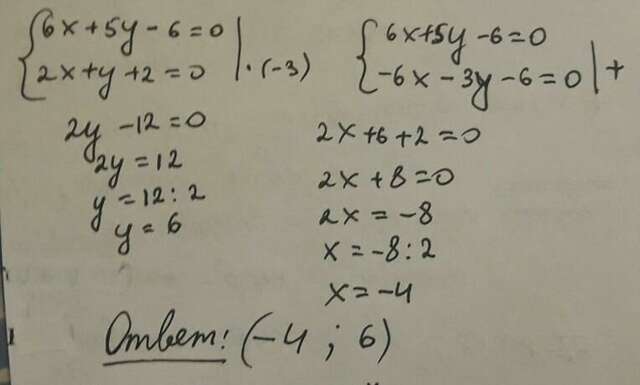 6x+5y-6=0
2x+y+2=0 | ·(-3)
6x+5y-6=0
-6x-3y-6=0 | +
2y-12=0
2y=12
y=12:2
y=6
2x+6+2=0
2x+8=0
2x=-8
x=-8:2
x=-4
Ответ: (-4 ; 6)